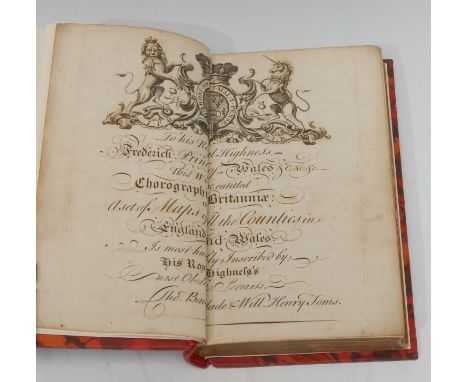 To his Royal Highness
Frederick Prince of Wales &c. &c. &c.
This Work entitled
Chorographia Britanniæ:
A set of Maps of all the Counties in
England and Wales:
Is most humbly Inscribed by
His Royal Highness's
most Obedient Servants,
Tho. Badeslade & Will. Henry Toms.